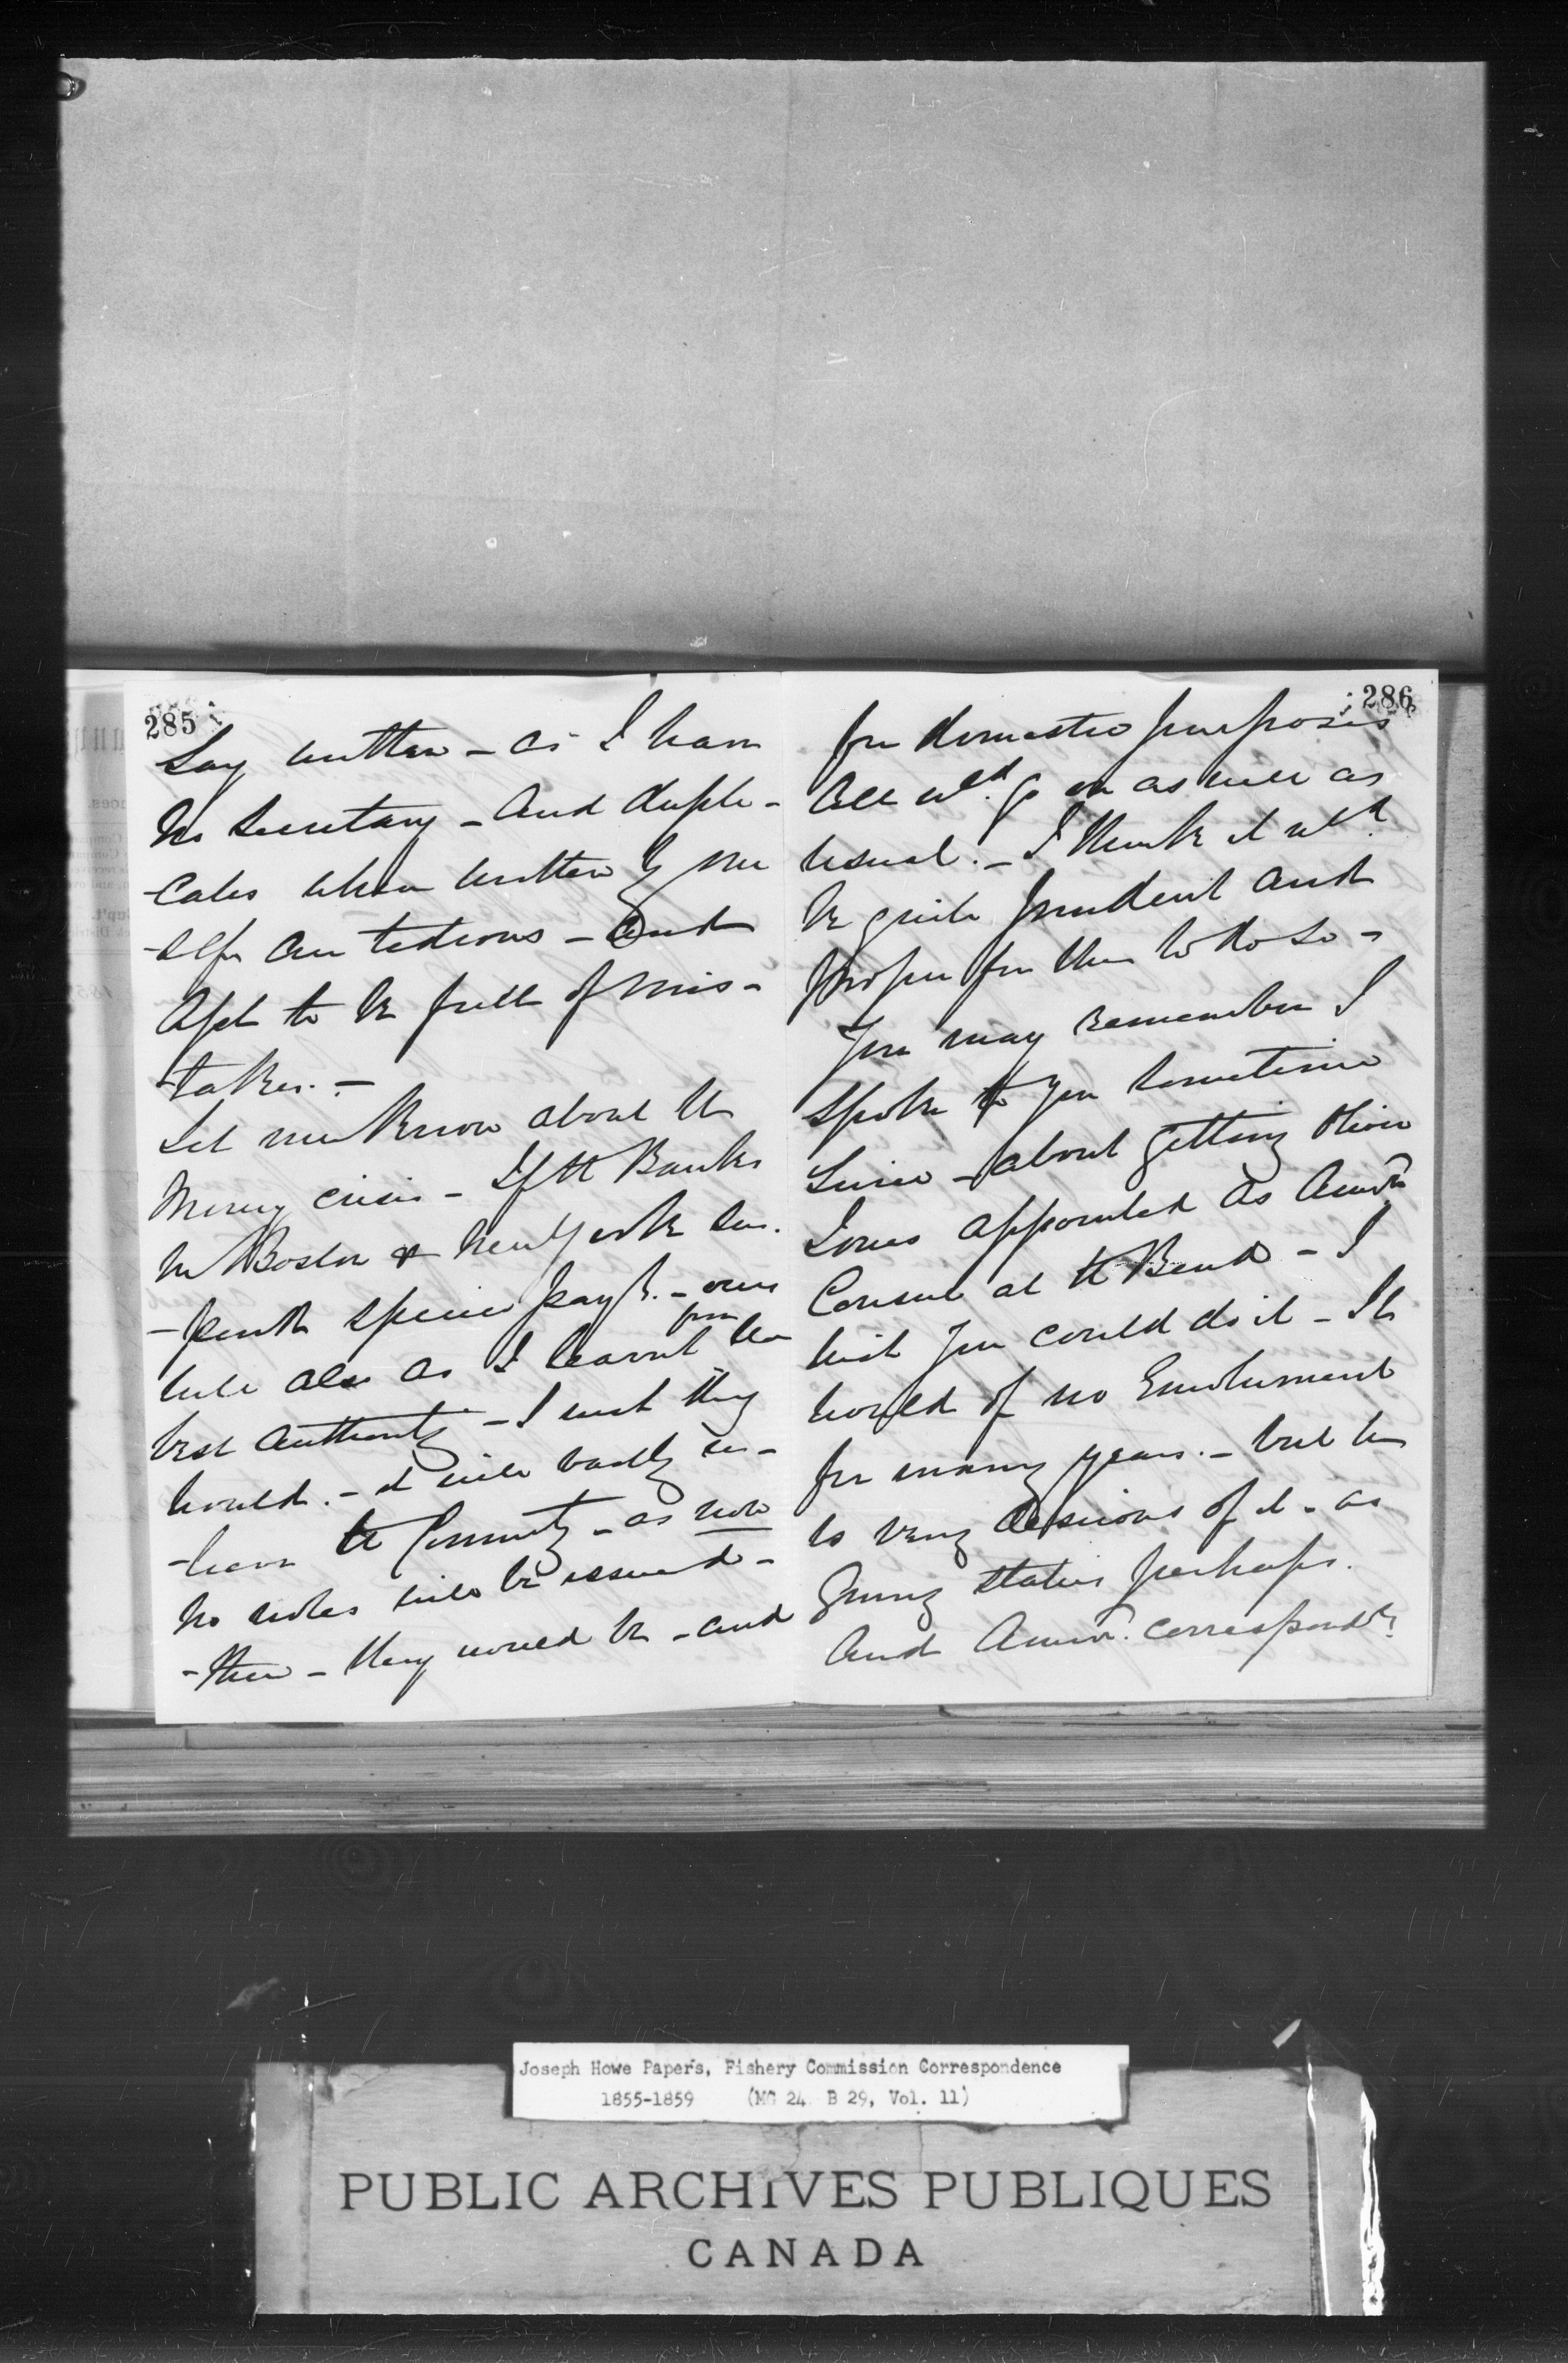 285
Say written - as I have
no Secretary - and dupli-
-cates when written by my
-self are tedious - and
apt to be full of mis-
-takes. -
Let me know about the
Money crisis - If the Banks
in Boston & New York sus.
-pend specie payt. - ours
will also as I learnt from the
best authority - I wish they
would. - it will badly
the Community - as now
no notes will be issued -
- then - they would be - and
286
for domestic purposes
all wld. go on as well as
usual. - I think it wld.
be quite prudent and
proper for them to do so -
You may remember I
spoke to you sometime
since - about getting Oliver
Jones appointed as Amern
Consul at the Bend - I
wish you could do it - It
would of no Emolument
for many years. - but he
is very desirous of it - as
giving status perhaps.
and Amern. correspondts.
Joseph Howe Papers, Fishery Commission Correspondence
1855-1859 (MG 24 B 29, Vol. 11)
PUBLIC ARCHIVES PUBLIQUES
CANADA